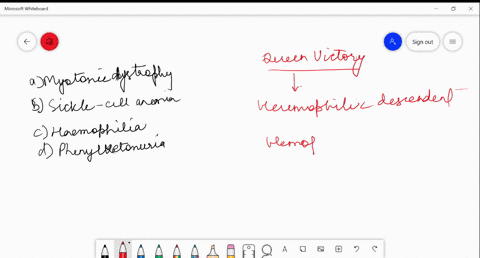 Microsoft Whiteboard
Sign out
a) Myotonic dystrophy
b) Sickle-cell anemia
c) Haemophilia
d) Phenylketonuria
Queen Victory
Haemophilic descendent
Hemop